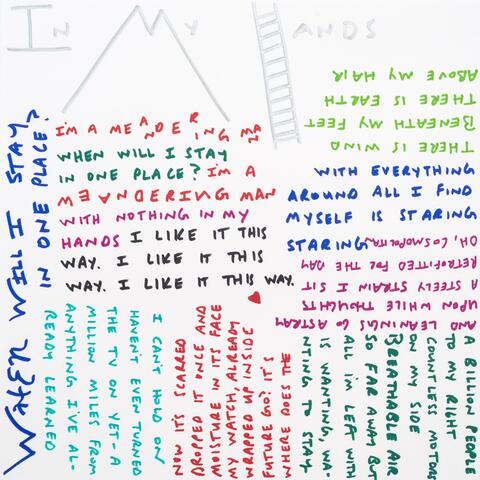 IN MY HANDS
WHEN WILL I STAY
IN ONE PLACE?
I'M A MEANDERING MAN
WHEN WILL I STAY
IN ONE PLACE? I'M A
MEANDERING MAN
WITH NOTHING IN MY
HANDS I LIKE IT THIS
WAY. I LIKE IT THIS
WAY. I LIKE IT THIS WAY.
THERE IS WIND
BENEATH MY FEET
THERE IS EARTH
ABOVE MY HAIR
WITH EVERYTHING
AROUND ALL I FIND
MYSELF IS STARING
STARING
OH, COSMOPOLITAN
RETROFITTED FOR THE DAY
A STEELY STRAIN I SIT
UPON WHILE THOUGHTS
AND LEANINGS GO ASTRAY
A BILLION PEOPLE
TO MY RIGHT
COUNTLESS MOTORS
ON MY SIDE
BREATHABLE AIR
SO FAR AWAY BUT
ALL I'M LEFT WITH
IS WANTING, WA-
NTING TO STAY
WHERE DOES THE
FUTURE GO? IT'S
WRAPPED UP INSIDE
MY WATCH, ALREADY
MOISTURE IN ITS FACE
DROPPED IT ONCE AND
NOW IT'S SCARRED
I CAN'T HOLD ON
HAVEN'T EVEN TURNED
THE TV ON YET - A
MILLION MILES FROM
ANYTHING I'VE AL-
READY LEARNED